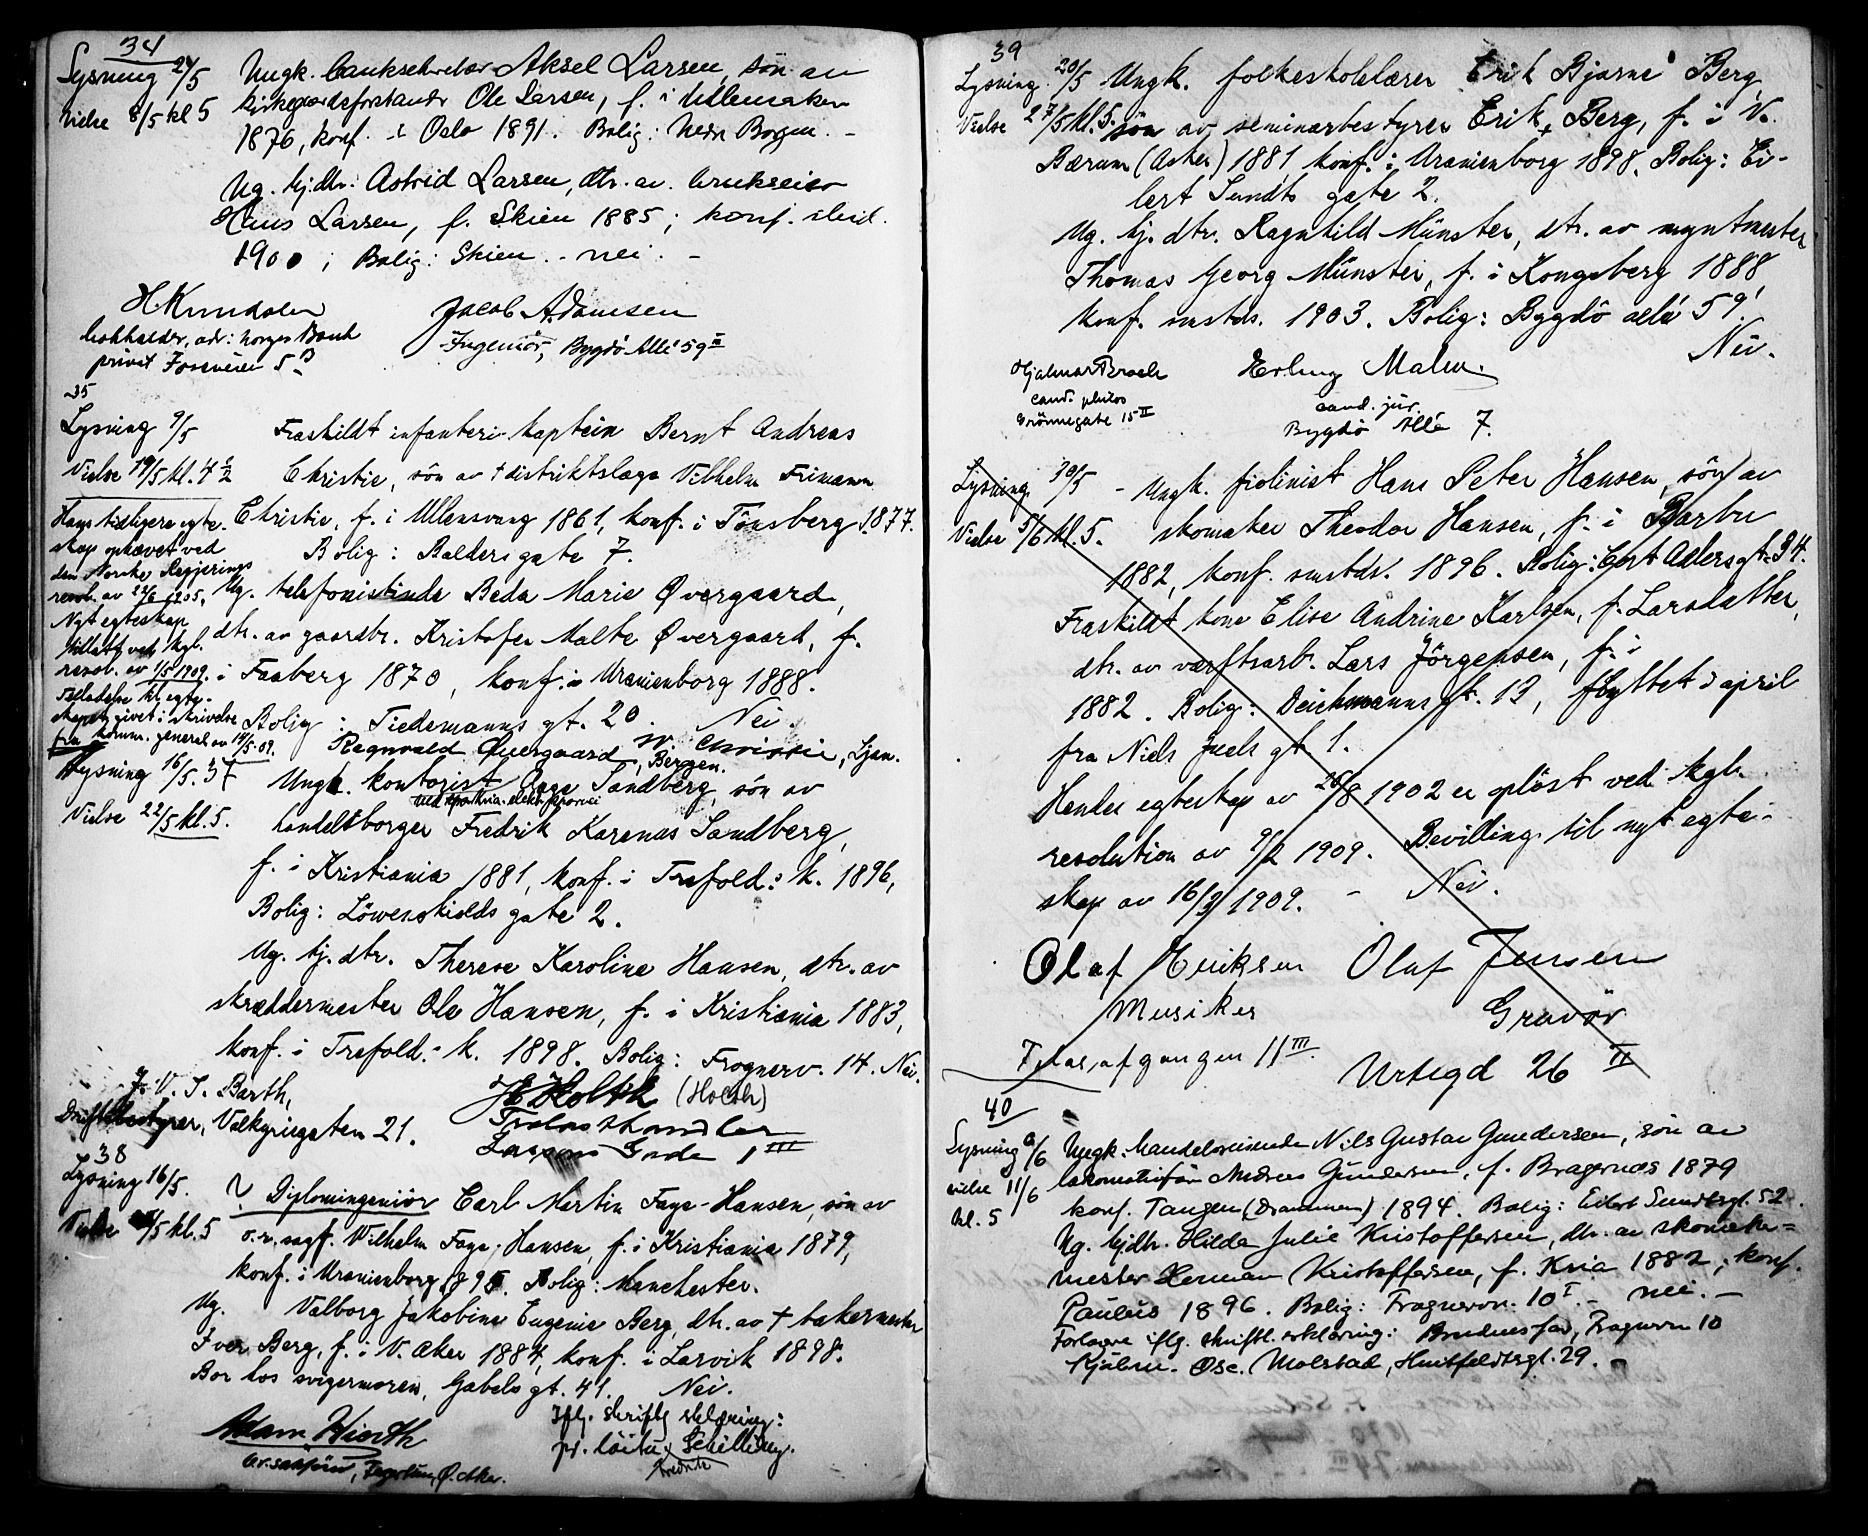 34
Lysning 24/5 Ungk. banksekretær Aksel Larsen, søn av
Vielse 8/5 kl 5 kirkegaardsforstandr Ole Larsen, f. i Ullensaker
1876, konf. i Oslo 1891. Bolig: Nedre Borgen. -
Ug. hj.dtr. Astrid Larsen, dtr. av brukseier
Hans Larsen, f. Skien 1885; konf. ibid.
1900; Bolig: Skien. - nei. -
H Knudsen Jacob Adamsen
bokholder, adr: Norges Bank Ingeniør, Bygdö Allé 59 III
privat Fossveien 5 B
35
Lysning 9/5 Fraskildt infanteri-kaptein Bernt Andreas
Vielse 19/5 kl. 4 1/2 Christie, sön av † distriktslæge Vilhelm Frimann
Hans tidligere egte- Christie, f. i Ullensvang 1861, konf. i Tönsberg 1877.
skap ophævet ved Bolig: Baldersgate 7.
den Norske Regjerings
resol. av 22/6 1905. Ug. telefonistinde Beda Marie Øvergaard,
Nyt egteskap
tillatt ved kgl. dtr. av gaardbr. Kristofer Malte Øvergaard, f.
resol. av 1/5 1909. i Faaberg 1870, konf. i Uranienborg 1888.
Tilladelse til egte-
skapet givet i skrivelse Bolig: Tiedemanns gt. 20. Nei.
fra komm. general av 14/5.09. Ragnvald Øvergaard, W. Christie, Ljan.
Bergen.
Lysning 16/5. 37 Ungk. kontorist Aage Sandberg, sön av
ved Kria. elektr.
Vielse 22/5 kl. 5. handelsborger Fredrik Karenas Sandberg,
f. i Kristiania 1881, konf. i Trefold: k. 1896,
Bolig: Löwenskiolds gate 2.
Ug. hj. dtr. Therese Karoline Hansen, dtr. av
skræddermester Ole Hansen, f. i Kristiania 1883,
konf. i Trefold.- k. 1898. Bolig: Frognerv. 14. Nei.
J. V. S. Barth, H Holth (Holth)
Driftsbestyrer, Valkyriegaten 21. Trælasthandler
Lassons Gade 1 III
38
Lysning 16/5. ? Diplomingeniör Carl Martin Faye-Hansen, sön av
Vielse /5 kl. 5 o.r.sagf. Vilhelm Faye-Hansen, f. i Kristiania 1879,
konf. i Uranienborg 189 . Bolig: Manchester.
Ug. Valborg Jakobine Eugenie Berg, dtr. av † bakermester
Iver Berg, f. i V. Aker 1884, konf. i Larvik 1898.
Bor hos svigermoren, Gabels gt. 41. Nei.
Adam Hiorth Iflg. skriftlg erklæring:
Fagerlun, Ø. Aker. pr. löitn. Schilling.
Fredrik
39
Lysning 20/5 Ungk. folkeskolelærer Erik Bjarne Berg,
Vielse 27/5 kl. 5. sön av seminarbestyrer Erik Berg, f. i V.
Bærum (Asker) 1881, konf. i Uranienborg 1898. Bolig: Ei-
lert Sundts gate 2.
Ug. hj. dtr. Ragnhild Münster, dtr. av myntmester
Thomas Georg Münster, f. i Kongsberg 1888,
konf. smstds. 1903. Bolig: Bygdö allé 59!
Nei.
Hjalmar Broch Erling Malm.
cand. philos cand. jur.
Grönnegate 15 II Bygdö Allé 7.
Lysning 30/5 - Ungk. fiolinist Hans Peter Hansen, sön av
Vielse 5/6 kl. 5. skomaker Theodor Hansen, f. i Barbu
1882, konf. smstds. 1896. Bolig: Cort Adlersgt. 24.
Fraskildt kone Elise Andrine Karlsen, f. Larsdatter,
dtr. av værftsarb. Lars Jörgensen, f. i
1882. Bolig: Deichmanns gt. 13, flyttet i april
fra Niels Juels gt. 1.
Hendes egteskap av 28/8 1902 er oplöst ved kgl.
resolution av 9/2 1909. Bevilling til nyt egte-
skap av 16/3 1909. - Nei.
Olaf Eriksen Olaf Jensen
Musiker Gravör
Telas,afgangen 11 III. Urtegd 26 II
40
Lysning 6/6 Ungk. handelsreisende Nils Gustav Gundersen, søn av
vielse 11/6 lokomotivfør. Andreas Gundersen, f. Bragernæs 1879
kl. 5 konf. Tangen (Drammen) 1894. Bolig: Eilert Sundtsgt. 52.
Ug. hjdtr. Hilda Julie Kristoffersen, dtr. av skomaker=
mester Herman Kristoffersen, f. Kria 1882; konf.
Paulus 1896. Bolig: Frognervn. 10 I. - nei. -
Forlovere iflg. skriftl. erklæring: Brudens far, Frognervn 10
Hjalm. Osc. Molstad, Huitfeldtsgt. 29.